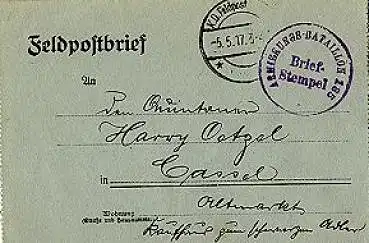 K.D. Feldpost
-5.5.17.
Feldpostbrief
ARMIERUNGS-BATAILLON 185
Brief-
Stempel
An
Den Quintaner
Harry Oetzel
in Cassel
Altmarkt
Wohnung
(Straße und Hausnummer)
Kaufhaus zum schwarzen Adler